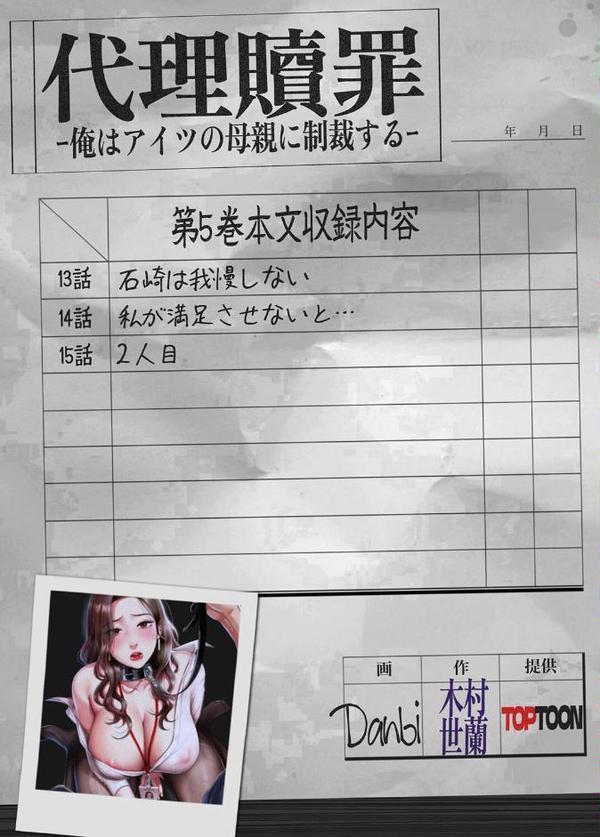 代理贖罪
-俺はアイツの母親に制裁する-
年 月 日
第5巻本文収録内容
13話 石崎は我慢しない
14話 私が満足させないと…
15話 2人目
画 作 提供
Danbi 木村世蘭 TOPTOON